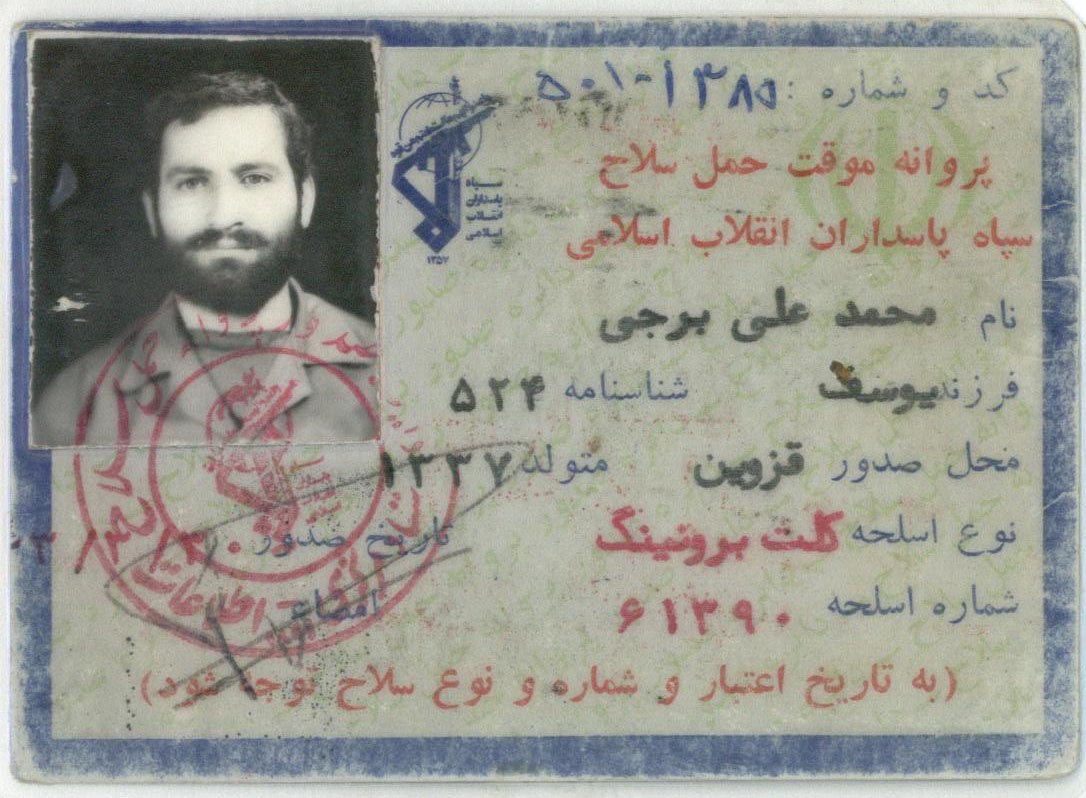 کد و شماره : ۱۳۸۵-۵۰۱
پروانه موقت حمل سلاح
سپاه پاسداران انقلاب اسلامی
سپاه
پاسداران
انقلاب
اسلامی
۱۳۵۷
نام محمد علی برجی
فرزند یوسف شناسنامه ۵۲۴
محل صدور قزوین متولد ۱۳۳۷
نوع اسلحه کلت برونینگ تاریخ صدور
شماره اسلحه ۶۱۳۹۰ امضاء
(به تاریخ اعتبار و شماره و نوع سلاح توجه شود)
اطلاعات